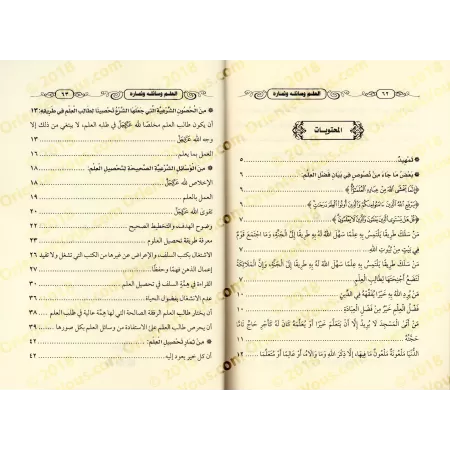 العلم وسائله وثماره
٦٢
المحتويات
تمهيد ٥
بعض ما جاء من نصوص في بيان فضل العلم: ٦
﴿إِنَّمَا يَخْشَى اللَّهَ مِنْ عِبَادِهِ الْعُلَمَاءُ﴾ ٦
﴿يَرْفَعِ اللَّهُ الَّذِينَ آمَنُوا مِنكُمْ وَالَّذِينَ أُوتُوا الْعِلْمَ دَرَجَاتٍ﴾ ٧
﴿قُلْ هَلْ يَسْتَوِي الَّذِينَ يَعْلَمُونَ وَالَّذِينَ لَا يَعْلَمُونَ﴾ ٧
مَنْ سَلَكَ طَرِيقًا يَلْتَمِسُ بِهِ عِلْمًا سَهَّلَ اللهُ لَهُ بِهِ طَرِيقًا إِلَى الجَنَّةِ، وَمَا اجْتَمَعَ قَوْمٌ
فِي بَيْتٍ مِنْ بُيُوتِ اللهِ ٧
مَنْ سَلَكَ طَرِيقًا يَلْتَمِسُ بِهِ عِلْمًا سَهَّلَ اللهُ لَهُ بِهِ طَرِيقًا إِلَى الجَنَّةِ، وَإِنَّ المَلَائِكَةَ
لَتَضَعُ أَجْنِحَتَهَا لِطَالِبِ العِلْمِ
مَنْ يُرِدِ اللهُ بِهِ خَيْرًا يُفَقِّهْهُ فِي الدِّينِ
فَضْلُ الْعِلْمِ خَيْرٌ مِنْ فَضْلِ العِبَادَةِ
مَنْ أَتَى المَسْجِدَ لَا يُرِيدُ إِلَّا أَنْ يَتَعَلَّمَ خَيْرًا أَوْ يُعَلِّمَهُ كَانَ لَهُ كَأَجْرِ حَاجٍّ تَامًّا
حَجَّتُهُ ١١
الدُّنْيَا مَلْعُونَةٌ مَلْعُونٌ مَا فِيهَا، إِلَّا ذِكْرَ اللهِ وَمَا وَالَاهُ أَوْ عَالِمًا أَوْ مُتَعَلِّمًا ١٢
العلم وسائله وثماره
٦٣
من الحصون الشرعية التي جعلها الشرع تحصينا لطالب العلم في طريقه: ١٣
أن يكون طالب العلم مخلصًا لله ﷿ في طلبه العلم، لا ينبغي من ذلك إلا
وجه الله ﷿ ١٣
العمل بما يعلم ١٦
من الوسائل الشرعية الصحيحة لتحصيل العلم: ١٨
الإخلاص لله ﷿ ١٨
تقوى الله ﷿ ٢٠
وضوح الهدف، والتخطيط الصحيح ٢٢
معرفة طريقة تحصيل العلوم ٢٣
الاشتغال بكتب السلف، والإعراض عن غيرها من الكتب التي تشغل ولا تفيد ٢٦
إعمال الذهن فهمًا وحفظًا
القراءة في همة السلف في تحصيل العلم
عدم الاشتغال بفضول الحياة
أن يختار طالب العلم الرفقة الصالحة التي لها همة عالية في طلب العلم ٣٨
أن يحرص طالب العلم على الاستفادة من وسائل العلم بكل صورها ٣٩
من ثمار تحصيل العلم: ٤٢
أن كل خير يعود إليه ٤٢
Orient
.com
2018